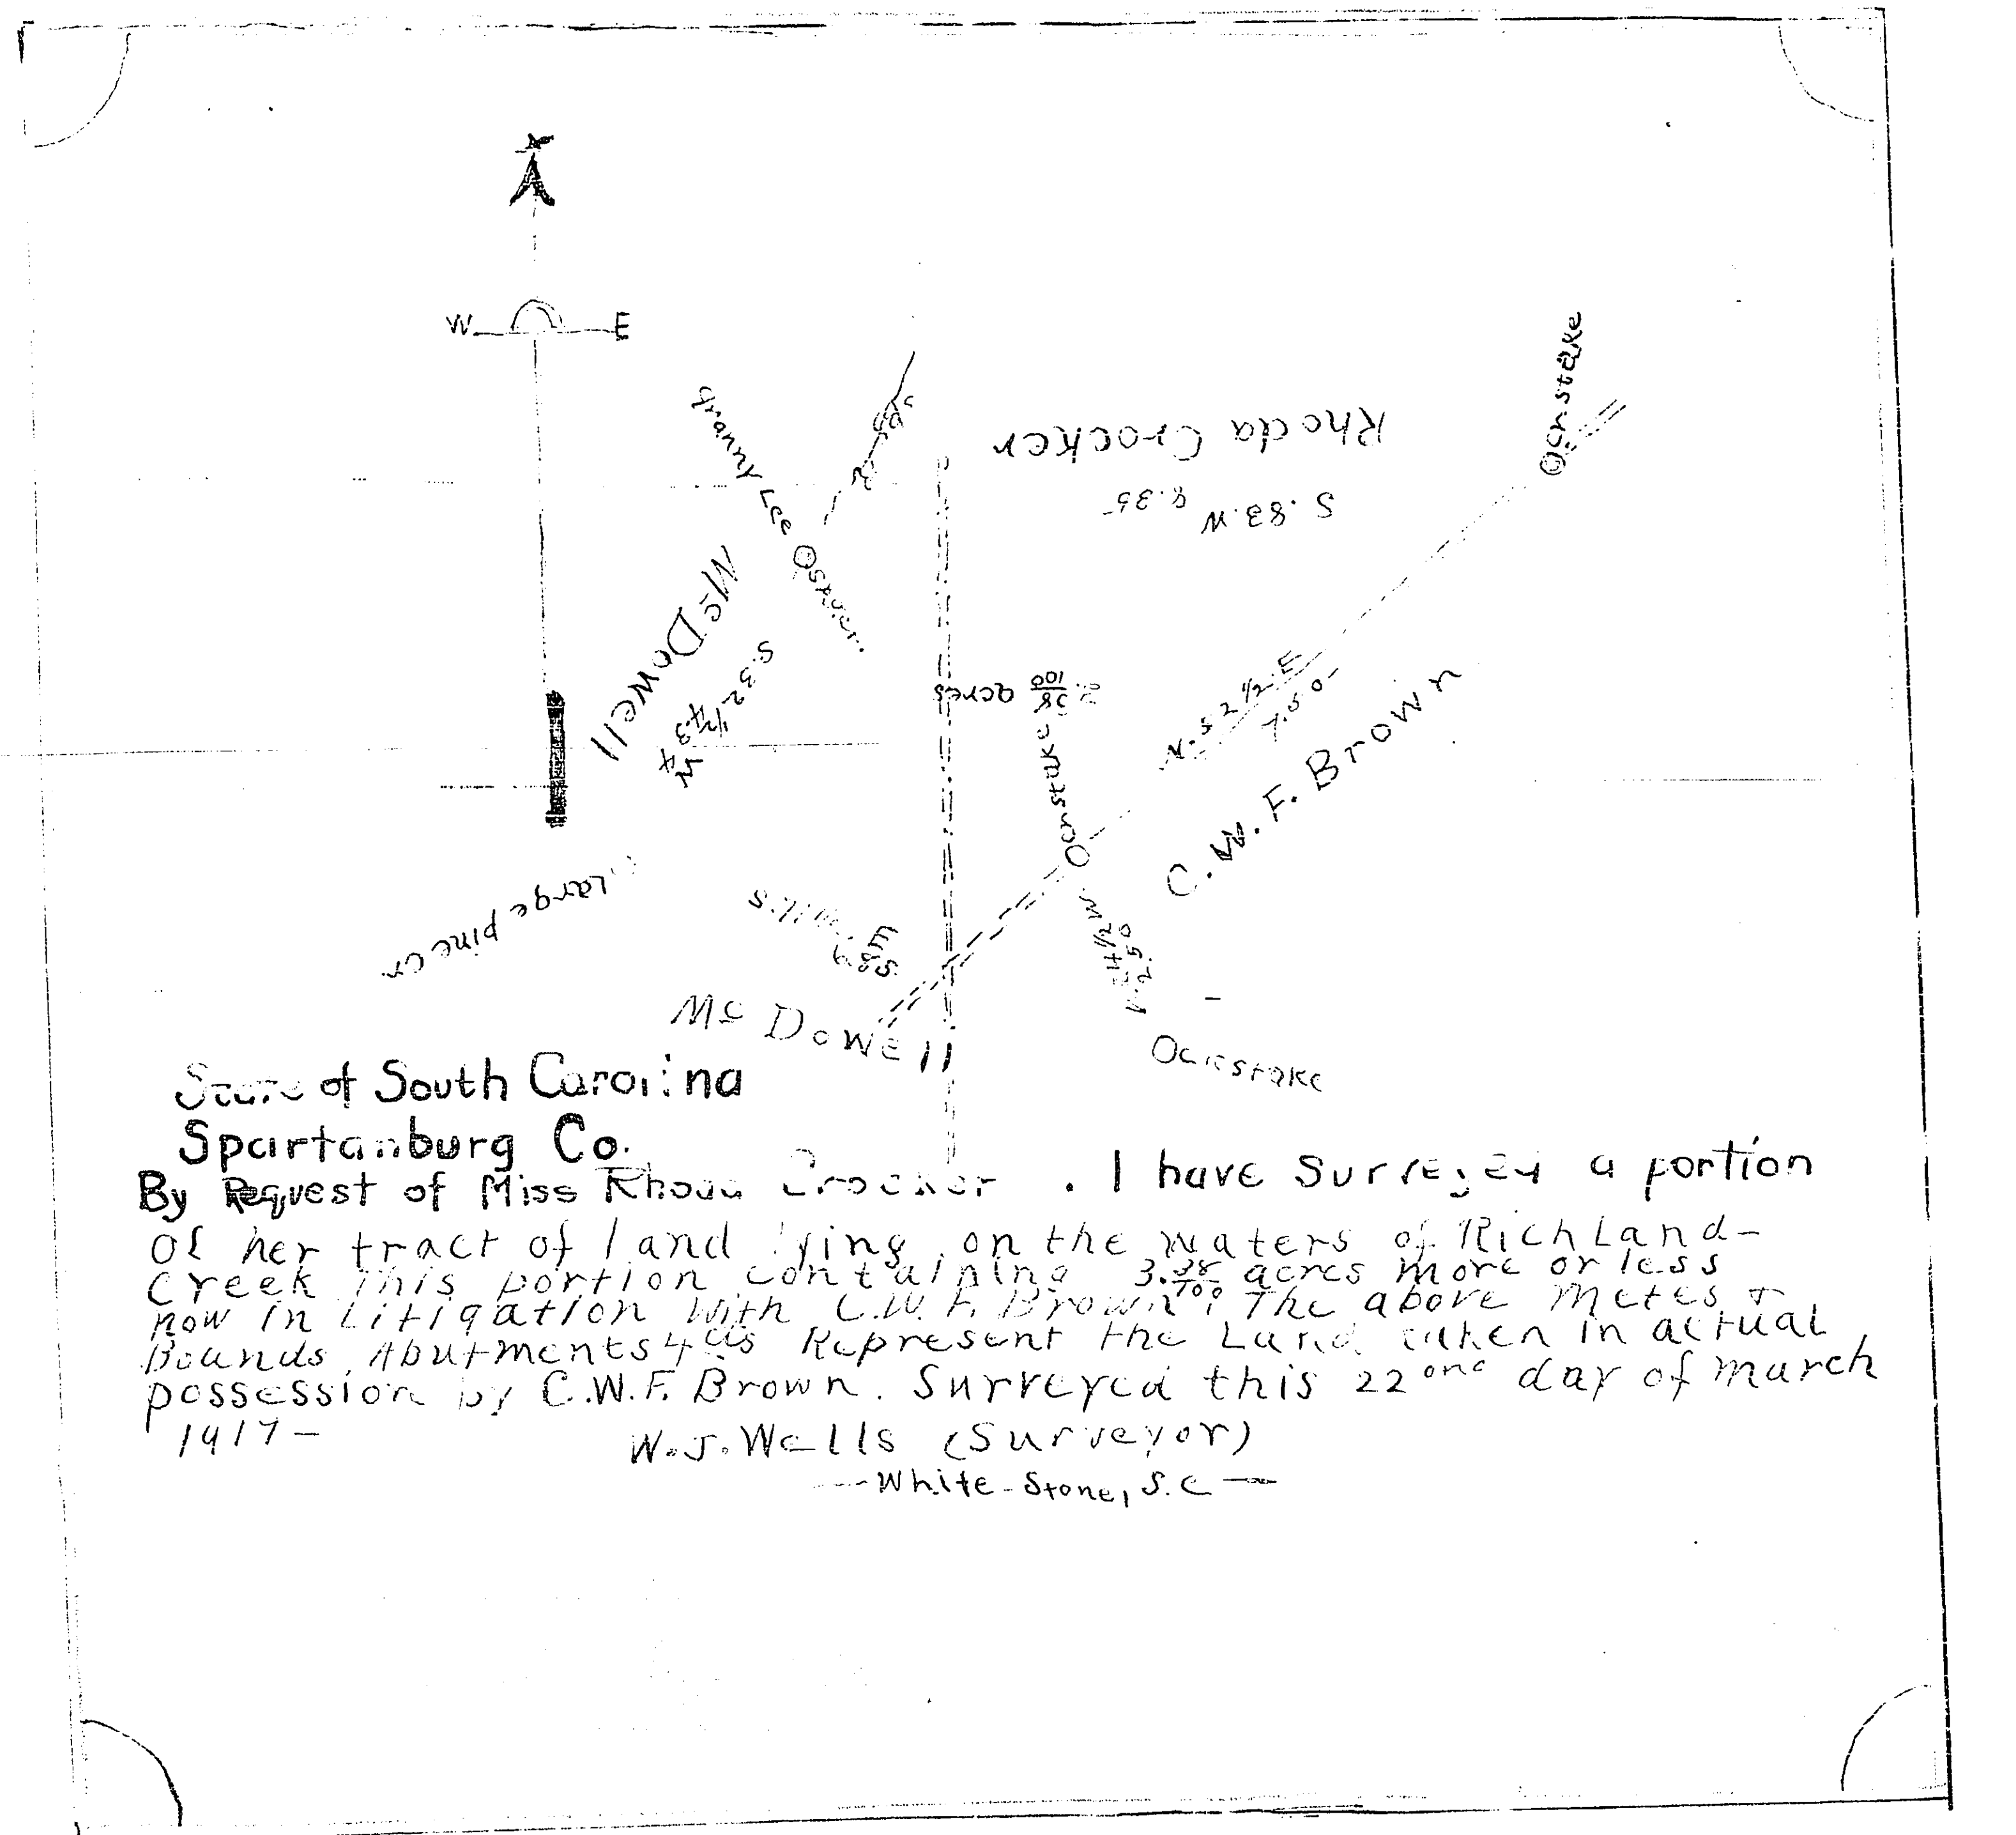 W E
Ocnstake
Rhoda Crocker
S. 83. W 9.35
Branny Lee
Road
McDowell
S. 32 1/2 W
acres
Ocnstake
N. 52 1/2. E
7.50
C. W. F. Brown
Large pine cn
2.50
McDowell
State of South Carolina
Spartanburg Co.
By Request of Miss Rhoda Crocker . I have Surveyed a portion
of her tract of land lying on the waters of RichLand-
Creek This portion containing 3.38/100 acres more or less
now in Litigation with C.W.F. Brown. The above metes +
Bounds, Abutments Represent the Land taken in actual
possession by C.W.F. Brown. Surveyed this 22ond day of march
1917-
W. J. Wells (Surveyor)
-White-Stone, S.C-